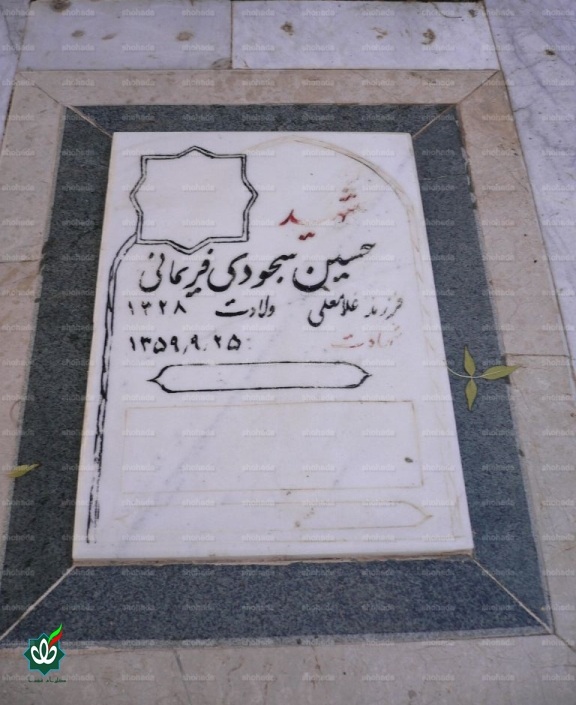 شهید
حسین سجودی فریمانی
فرزند غلامعلی ولادت ۱۳۲۸
شهادت: ۱۳۵۹٫۹٫۲۵
shohada